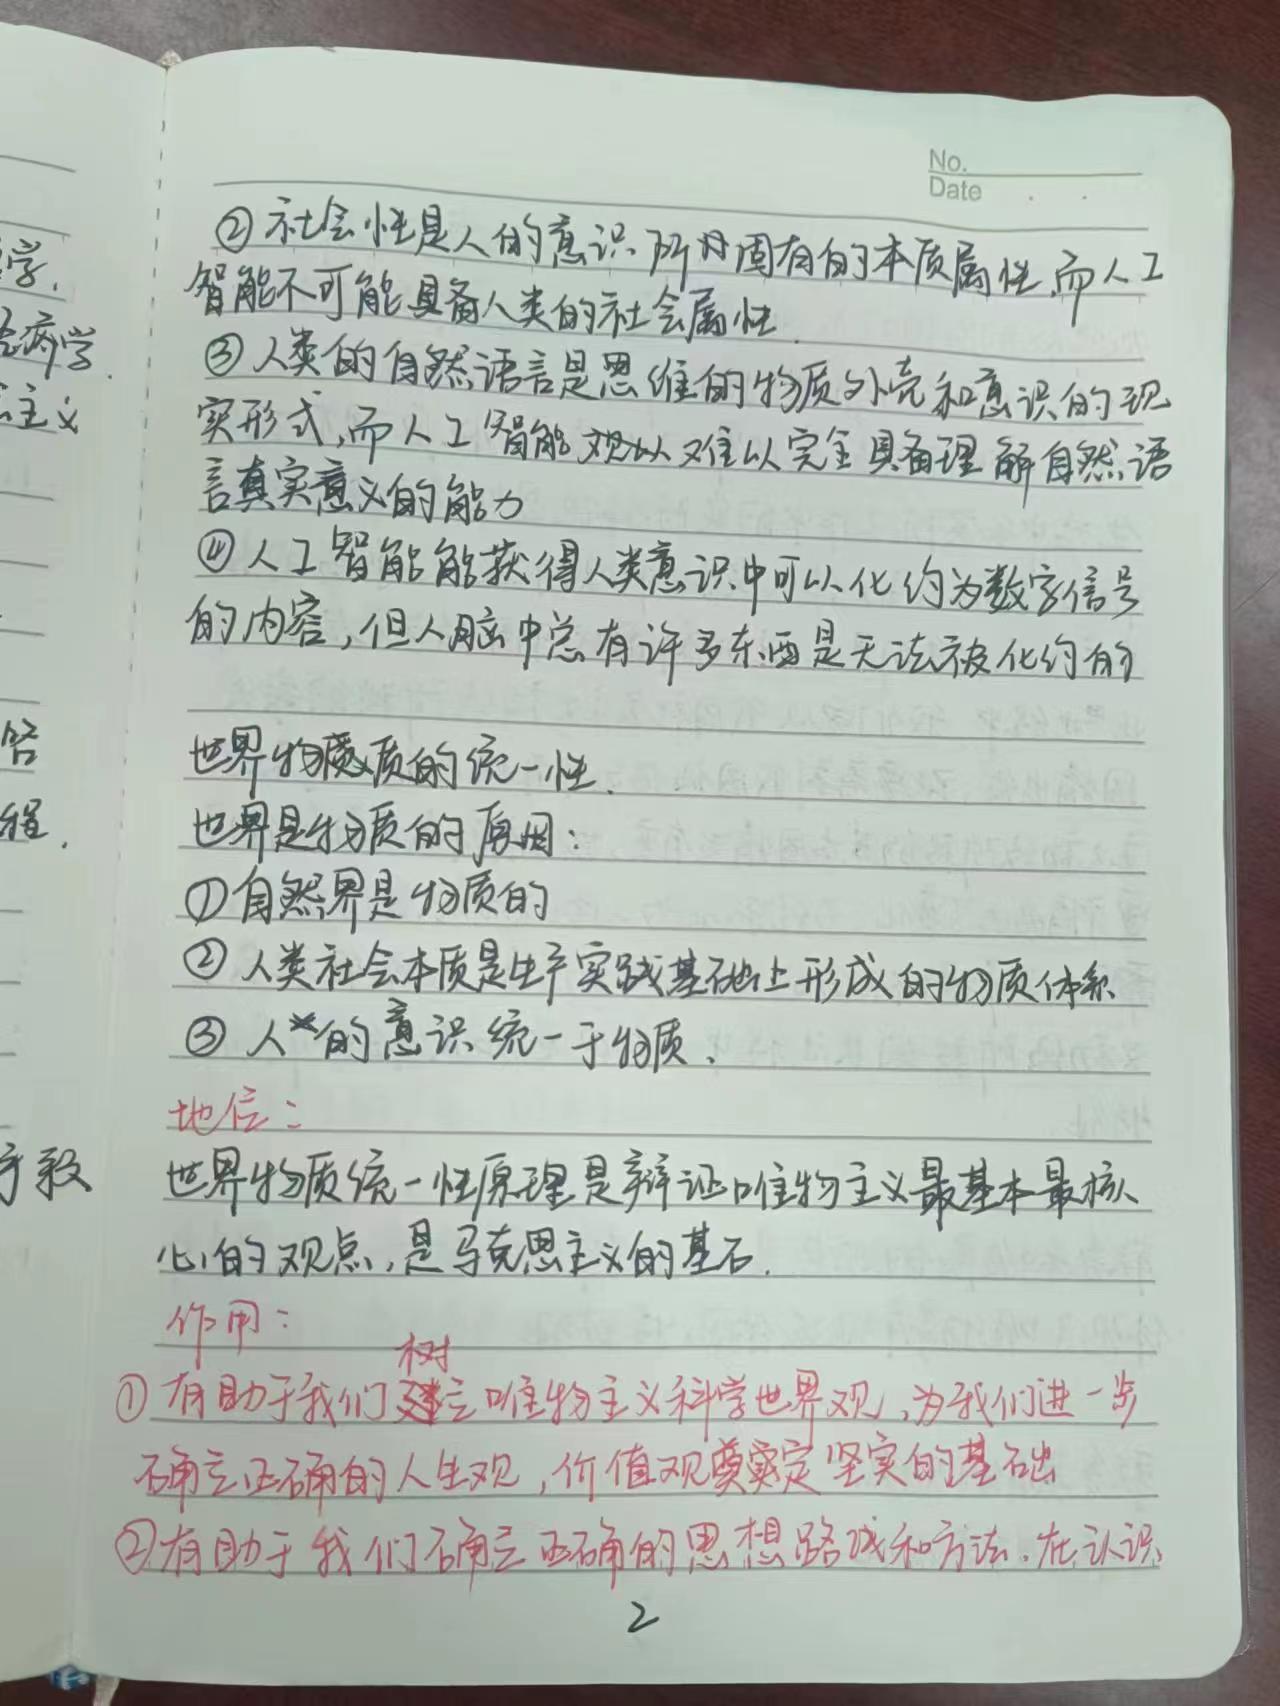 No.
Date
②社会性是人的意识所固有的本质属性,而人工
智能不可能具备人类的社会属性.
③人类的自然语言是思维的物质外壳和意识的现
实形式,而人工智能难以完全具备理解自然语
言真实意义的能力
④人工智能能获得人类意识中可以化约为数字信号
的内容,但人脑中总有许多东西是无法被化约的
世界物质的统一性.
世界是物质的原因:
①自然界是物质的
②人类社会本质是生产实践基础上形成的物质体系
③人的意识统一于物质.
地位:
世界物质统一性原理是辩证唯物主义最基本最核
心的观点,是马克思主义的基石.
作用:
树
①有助于我们立唯物主义科学世界观,为我们进一步
确立正确的人生观,价值观奠定坚实的基础
②有助于我们确立正确的思想路线和方法.在认识
2
学.
病学.
主义
程.